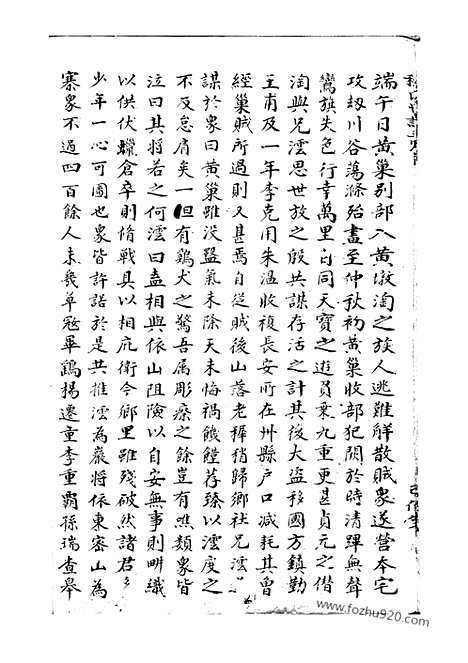 端午日黄巢别部入黄墩淘之族人逃難觧散賊衆遂營本宅
攻刼川谷蕩滌殆盡至仲秋初黄巢收部犯闕於時清蹕無聲
鸞旗失色行幸萬里自同天寳之遊員乗九重更甚貞元之僣
淘與兄澐思世故之殷共謀存活之計其後大盗移國方鎮勤
王甫及一年李克用朱温收複長安所在州縣户口减耗其曾
經巢賊所過則又甚焉自從賊後山落老穉稍歸鄉社兄澐
謀於衆曰黄巢雖没盬氣未除天未悔禍饑饉荐臻以澐度之
不及息肩矣一但有鷄犬之驚吾属彫瘵之餘豈有噍類衆皆
泣曰其將若之何澐曰盍相與依山阻險以自安無事則畊織
以供伏臘倉卒則脩戰具以相庇衛今鄉里雖殘破然諸君
少年一心可圖也衆皆許諾於是共推澐為巖将依東密山為
寨衆不過四百餘人未幾草宼畢鷂揚遷童李重霸孫瑞查皋
www.fozhu920.com